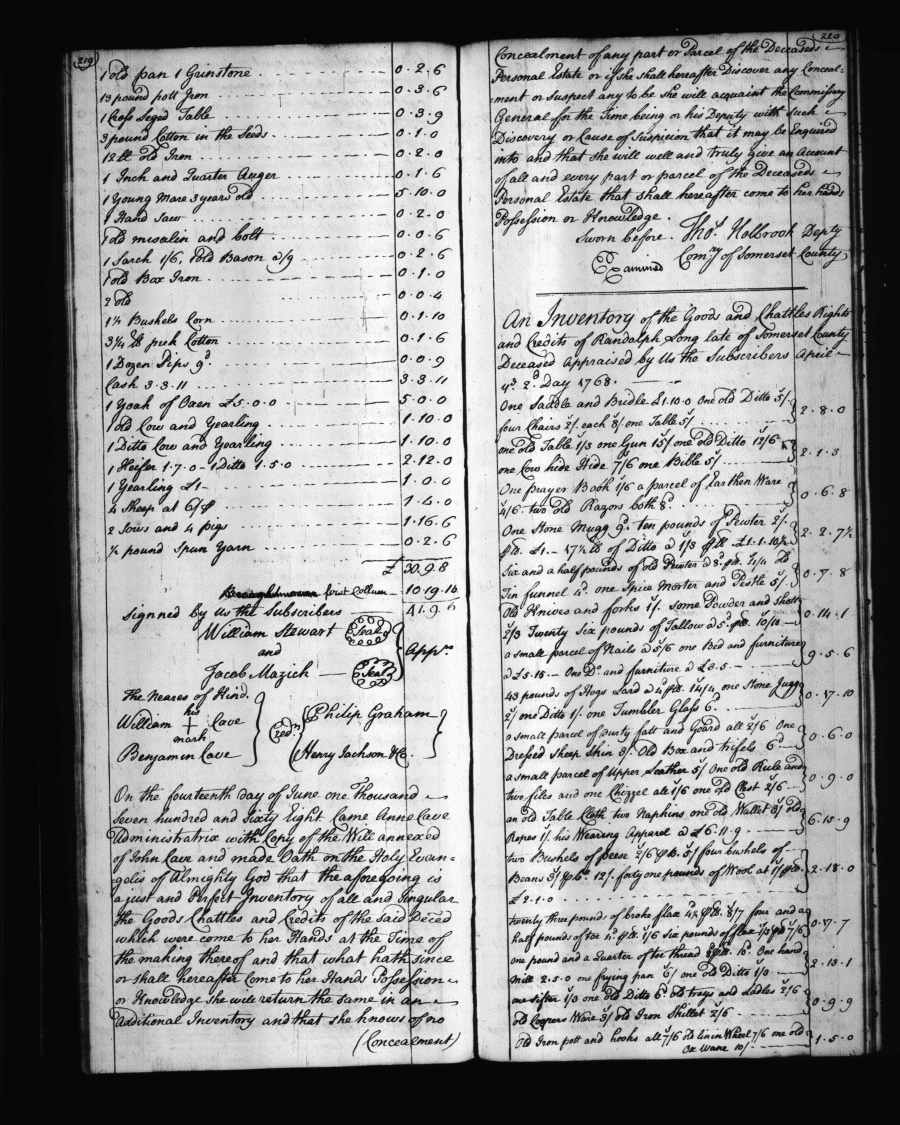 219
1 old pan 1 Grinstone 0.2.6
13 pound pott Iron 0.3.6
1 Cross Leged Table 0.3.9
3 pound Cotton in the Seeds 0.1.0
12 lb old Iron 0.2.0
1 Inch and Quarter Auger 0.1.6
1 Young Mare 3 years old 5.10.0
1 Hand Saw 0.2.0
1 old muslin and bolt 0.0.6
1 Sarch 1/6, 1 old Bason 2/9 0.2.6
1 old Box Iron 0.1.0
2 old 0.0.4
1½ Bushels Corn 0.1.10
3¼ lb pick Cotton 0.1.6
1 Dozen Pips 9d 0.0.9
Cash 3.3.11 3.3.11
1 Yoah of Oxen £5.0.0 5.0.0
1 old Cow and Yearling 1.10.0
1 Ditto Cow and Yearling 1.10.0
1 Heifer 1.7.0 1 Ditto 1.5.0 2.12.0
1 Yearling £1 1.0.0
4 Sheep at 6/ 1.4.0
2 Sows and 4 pigs 1.16.6
½ pound Spun Yarn 0.2.6
£ 30.9.8
first Collum 10.19.10
signned by Us the Subscribers 41.9.
William Stewart Seal
and Apprs
Jacob Mazick Seal
The Neares of Kind.
his
William + Cave
mark
Benjamin Cave
Credrs
Philip Graham
Henry Jackson & Co.
On the fourteenth day of June one Thousand
seven hundred and Sixty Eight Came Anne Cave
Administratrix with Copy of the Will annexed
of John Cave and made Oath on the Holy Evan=
gelis of Almighty God that the aforegoing is
a just and Perfect Inventory of all and Singular
the Goods Chattles and Credits of the said Deced
which were come to her Hands at the Time of
the making thereof and that what hath since
or shall hereafter Come to her Hands Possession
or Knowledge she will return the same in an
Additional Inventory and that she knows of no
(Concealment)
220
Concealment of any part or Parcel of the Deceaseds
Personal Estate or if she shall hereafter Discover any Conceal=
ment or suspect any to be she will acquaint the Commissary
General for the Time being or his Deputy with such
Discovery or Cause of Suspicion that it may be Enquired
into and that she will well and truly give an Account
of all and every part or parcel of the Deceaseds
Personal Estate that shall hereafter come to her hands
Possession or Knowledge.
Sworn before. Thos. Holbrook Depty
Examined Comry of Somerset County
An Inventory of the Goods and Chattles Rights
and Credits of Randolph Long late of Somerset County
Deceased Appraised by Us the Subscribers April
4th 2d Day 1768.
One Saddle and Bridle £1.10.0 One old Ditto 5/
four Chairs 2/. each 8/ one Table 5/ 2.8.0
one old Table 1/3 one Gun 15/ one old Ditto 12/6
one Cow hide Hide 7/6 one Bible 5/ 2.1.3
One prayer Book 1/6 a parcel of Earthen Ware
4/6 two old Razors both 8d 0.6.8
One Stone Mugg 9d. ten pounds of Pewter 2/.
plb. £1. 17½ lb of Ditto a 1/3 plb £1.1.10½ 2.2.7½
Six and a half pounds of old Pewter a 8d plb. 4/4 old
Tin funnel 4d. one Spice Morter and Pestle 5/. 0.7.8
Old Knives and forks 1/. Some Powder and Shott
2/3 Twenty Six pounds of Tallow a 5d plb. 10/10 0.14.1
a small parcel of Nails a 5/6 one Bed and furniture
a £5.15 One Do. and furniture a £3.5 9.5.6
43 pounds of Hogs Lard a 4d plb. 14/4 one Stone Jugg
2/ one Ditto 1/. one Tumbler Glass 6. 0.17.10
a small parcel of durty fatt and Goard all 2/6 One
Dressed Sheep Skin 3/. Old Box and trifels 6d 0.6.0
a small parcel of Upper Leather 5/ One old Rule and
two files and one Chizzel all 1/6 one old Chest 2/6 0.9.0
an old Table Cloth two Napkins one old Wallet 3/ Old
Ropes 1/. his Wearing Apparel a £6.11.9 6.15.9
two Bushels of Pease 2/6 pb. 5/ four bushels of
Beans 3/ pb. 12/. forty one pounds of Wool at 1/ plb. 2.18.0
£2.1.0
twenty three pounds of broke flax 4½ plb. 8/7 four and a
half pounds of toe 4d. plb. 1/6 six pounds of flax 1/3 plb 7/6 0.17.7
one pound and a Quarter of toe thread plb. 10d. One hand
Mill 2.5.0 one frying pan 6/ one old Ditto 1/3 2.13.1
one sifter 1/3 one old Ditto 6d. Old trays and Ladles 2/6
old Coopers Ware 3/ old Iron Skillet 2/6 0.9.9
Old Iron pott and hooks all 7/6 Old linin Wheel 7/6 one old
Ox Wane 10/ 1.5.0